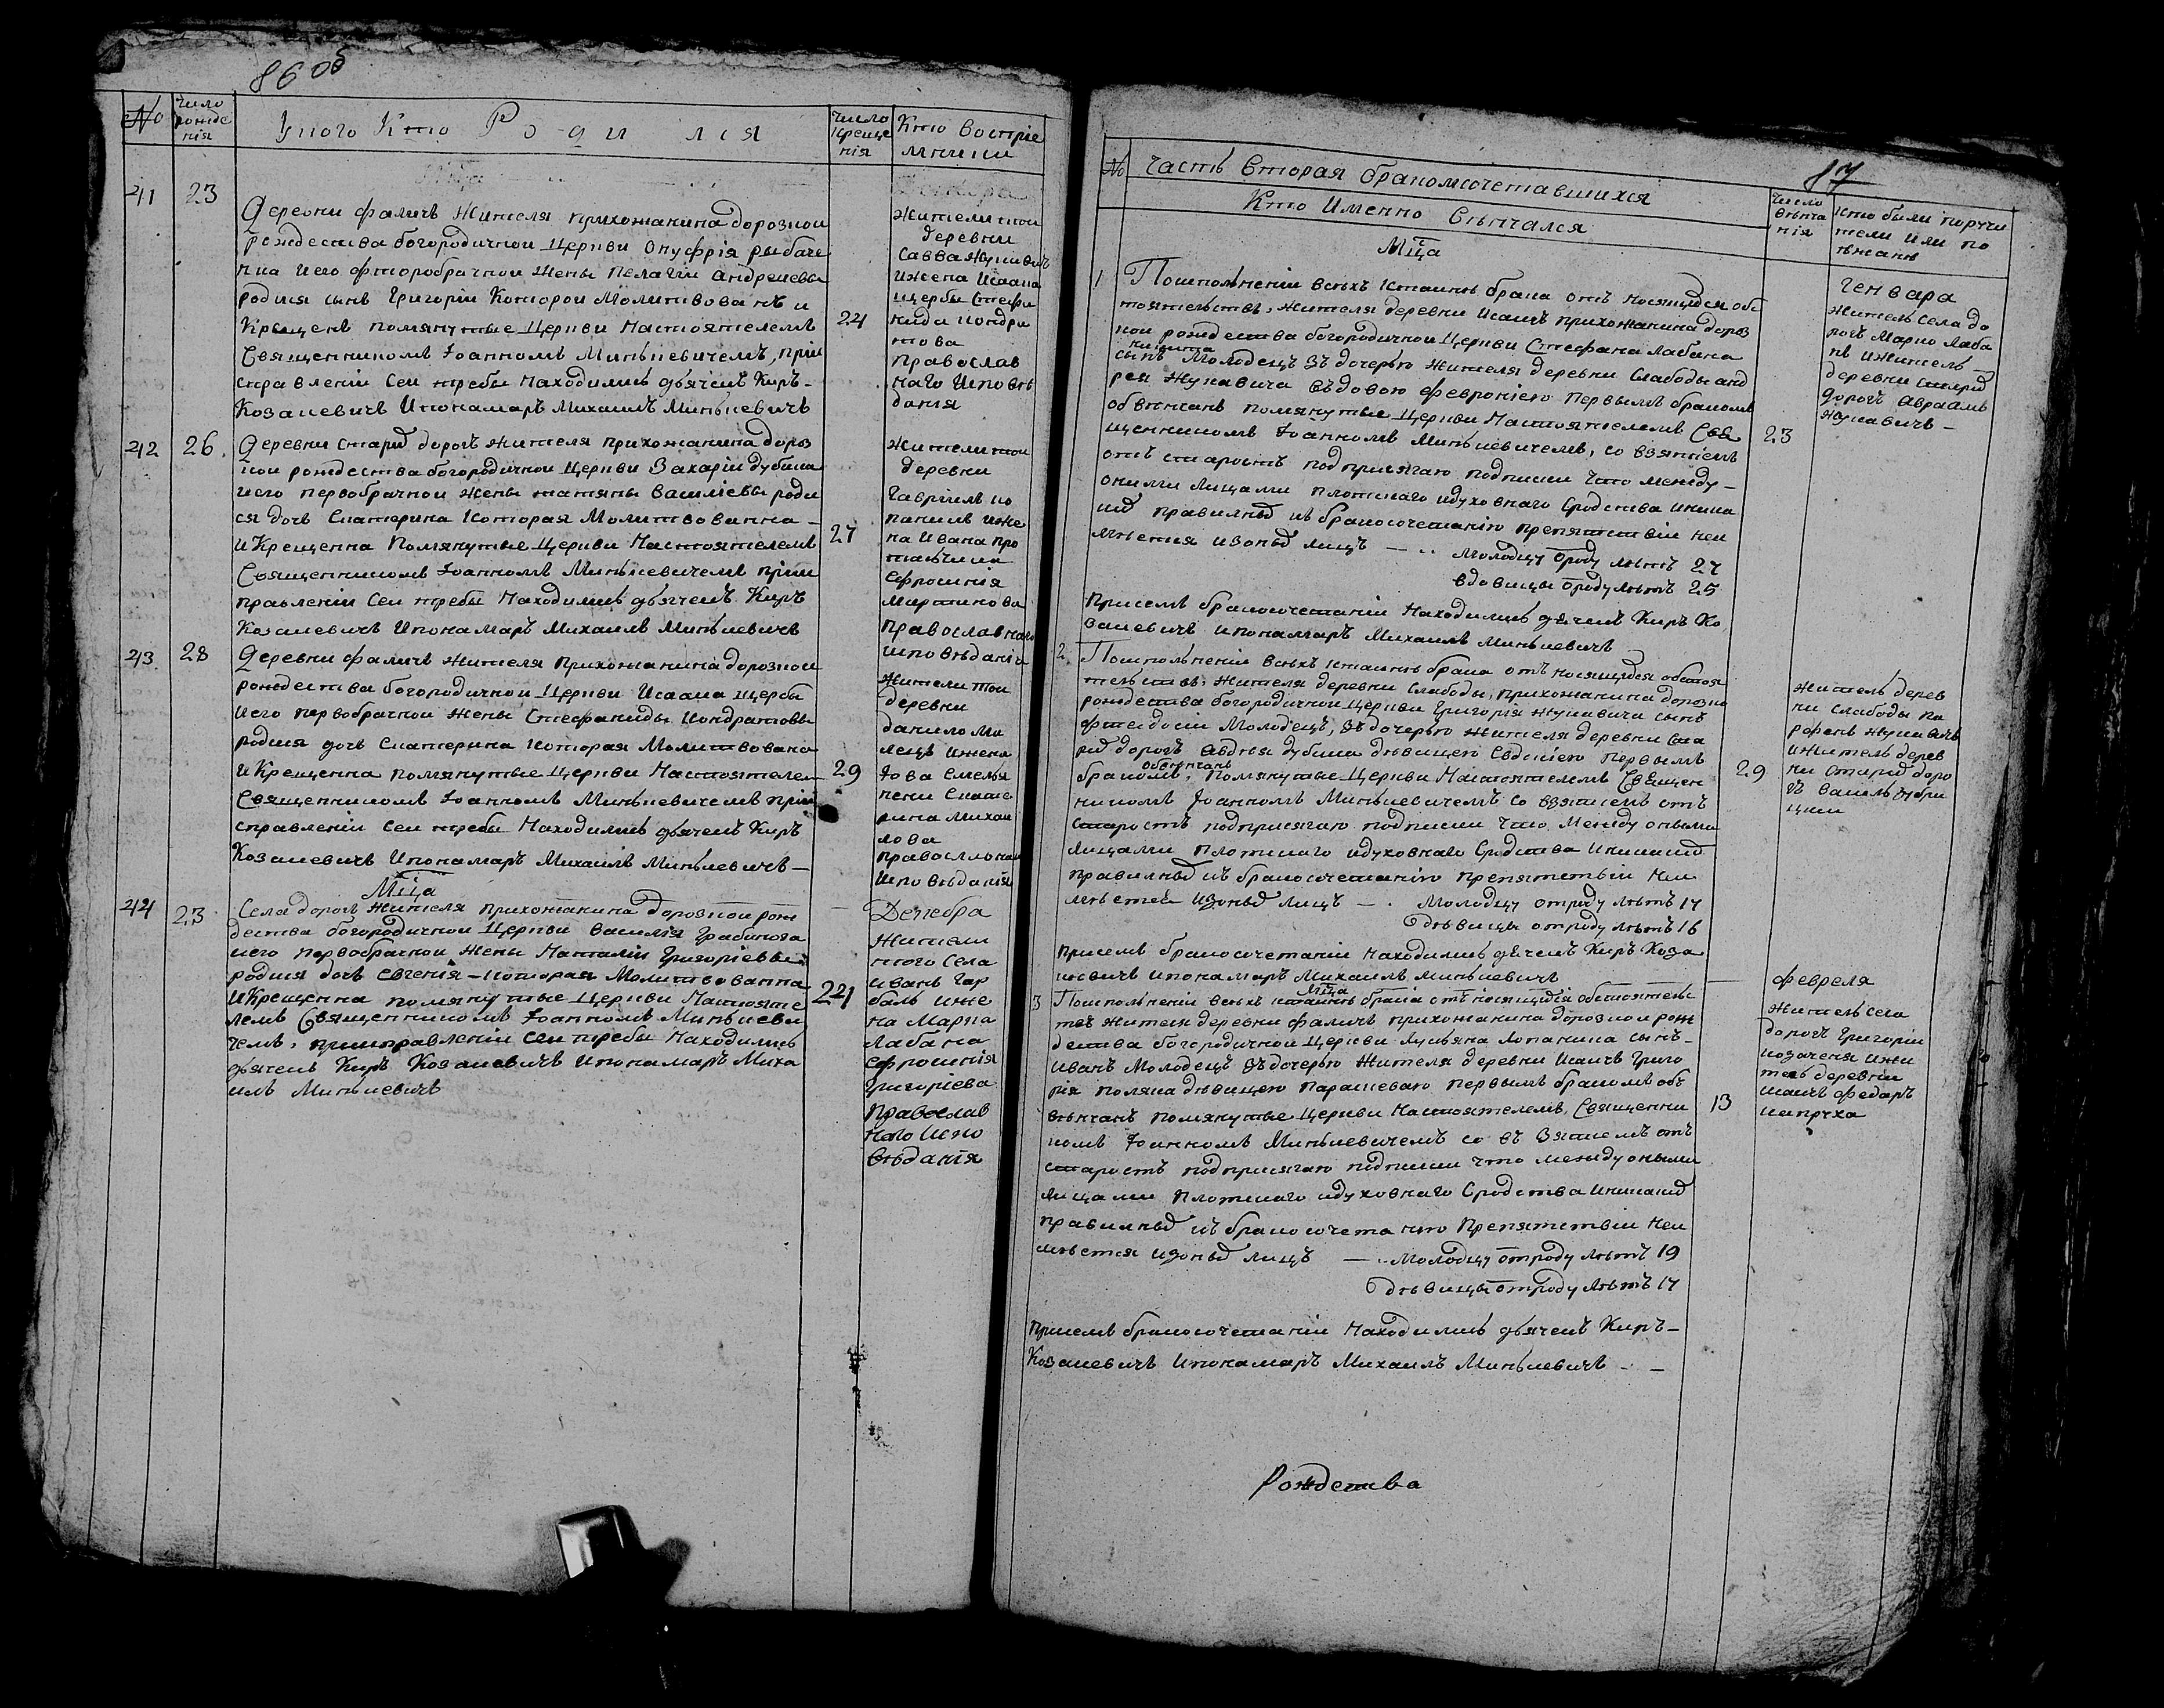 86 об
№
Число рожде нія
У кого Кто Ро ди лся
Число креще нія
Кто воспріе мники
41 23
Деревни Фаличь Жителя прихожанина дорозкои
рождества богородичнои Церкви Онуфрія рыбаче
нка и его фторобрачнои жены Пелагіи Андреевы
родился сынъ Григоріи Которои Молитвованъ и
Крещенъ помянутые Церкви Настоятелемъ
Священникомъ Іоанномъ Минькевичемъ, при
справленіи сеи требы находились дьячекъ Киръ
Козакевичъ И понамаръ Михаилъ Минькевичъ
24
Жители тои
деревни
Савва
и жена Исаака
щербы Стефа
нида Кондра
това
Православ
наго исповѣ
данія
42 26
Деревни старыхъ дорогъ жителя прихожанина дороз
кои рождества богородичнои Церкви Захаріи дубина
и его первобрачнои жены татяны василіевы роди
ся дочь Екатерина Которая Молитвованна
и Крещенна Помянутые Церкви Настоятелемъ
Священникомъ Іоанномъ Минькевичемъ при
правленіи Сеи требы Находились дьячекъ Киръ
Козакевичъ И понамаръ Михаилъ Минькевичъ
27
Жители тои
деревни
Гавріилъ
и же
на Ивана
Ефросинія
Мартинова
Православнаго
исповѣданія
43 28
Деревни Фаличь жителя Прихожанина дорозкои
рождества богородичнои Церкви Исаака щербы
и его первобрачнои жены Стефаниды Кондратовы
родися дочь Екатерина Которая Молитвована
и Крещенна помянутые Церкви Настоятеле
Священникомъ Іоанномъ Минькевичемъ при
справленіи Сеи требы Находились дьячекъ Киръ
Козакевичъ И понамаръ Михаилъ Минькевичъ
29
Жители тои
деревни
данило
и жена
Екате
рина Михаи
лова
православнаго
исповѣданія
Мца
Декебра
44 23
Села дорогъ Жителя прихожанина дорозкои рож
дества богородичнои Церкви Василія Грабинова
и его первобрачнои Жены Наталіи Григоріевы
родися дочь Евгенія Которая Молитвованна
и Крещенна помянутые Церкви Настояте
лемъ Священникомъ Іоанномъ Минькеви
чемъ, при справленіи сеи требы Находились
дьячекъ Киръ Козакевичъ И понамаръ Миха
илъ Минькевичъ
24
Жители
того Села
иванъ Гар
баль и же
на Марка
Лабана
Ефросинія
Григоріева
Православ
наго испо
вѣданія
87
№ Часть вторая бракомсочетавшихся
Кто Именно Вѣнчался
Число вѣнча нія
Кто были поручи тели или по ѣжане
Мца
Генвара
1
По исполненіи всѣхъ Касающихся обс
тоятельствъ, жителя деревни Исаичъ прихожанина дороз
кои рождества богородичнои Церкви Стефана Лабана
никита
сынъ Молодецъ Зъ дочерью жителя деревни Слабоды анд
рея Жукавича вдовою Февроніею первымъ бракомъ
обвѣнчанъ помянутые Церкви Настоятелемъ Свя
щенникомъ Іоанномъ Минькевичемъ, со взятіемъ
отъ старостъ под присягаю подписки что между
оными лицами плотскаго и духовнаго сродства и ника
кихъ правилныхъ къ бракосочетанію препятствіи неи
мѣется изоныхъ лицъ — Молодцу отроду лѣтъ 27
вдовицы отроду лѣтъ 25
При семъ бракосочетаніи Находились дьячекъ Киръ Ко
закевичъ и понамаръ Михаилъ Минькевичъ
23
житель села до
рогъ Марко Лаба
нъ и житель
деревни старихъ
дорогъ Авраамъ
Жукавичъ
2
По исполненіи всѣхъ касающихся обстоя
телствъ жителя деревни Слабоды, прихожанина дорозко
рождества богородичнои Церкви Григорія Жукавича сынъ
Молодецъ, Зъ дочерью жителя деревни ста
рихъ дорогъ Авдея дубина дѣвицею Евдокіею Первымъ
обвѣнчанъ
бракомъ, помянутые Церкви Настоятелемъ Священ
никомъ Іоанномъ Минькевичемъ со взятіемъ отъ
старостъ подприсягаю подписки что между оными
лицами плотскаго и духовнаго Сродства и никакихъ
правилныхъ къ бракосочетанію препятствіи неи
мѣется изоныхъ лицъ — Молодцу отроду лѣтъ 17
дѣвицы отроду лѣтъ 16
При семъ бракосочетаніи находились дьячекъ Киръ Коза
кевичъ и понамаръ Михаилъ Минькевичъ
29
житель дерев
ни слабоды па
рфенъ Жукавичъ
и житель дерев
ни старихъ доро
гъ
Мца
Февреля
3
По исполненіи всѣхъ касающихся обстоятельс
твъ жителя деревни Фаличь прихожанина дорозкои рож
дества богородичнои Церкви Лукьяна Лопанина сынъ
иванъ Молодецъ Зъ дочерью жителя деревни исаичъ Григо
рія поляка дѣвицею Парасковіею первымъ бракомъ объ
вѣнчанъ помянутые Церкви Настоятелемъ Священни
комъ Іоанномъ Минькевичемъ со въ взятіемъ отъ
старостъ подприсягаю подписки что между оными
лицами плотскаго и духовнаго Сродства и никакихъ
правилныхъ къ бракосочетанію препятствіи неи
мѣется изоныхъ лицъ — Молодцу отроду лѣтъ 19
дѣвицы отроду лѣтъ 17
При семъ бракосочетаніи находились дьячекъ Киръ
Козакевичъ и понамаръ Михаилъ Минькевичъ
13
житель села
дорогъ Григоріи
и жи
тель деревни
исаичъ Федаръ
Рождества